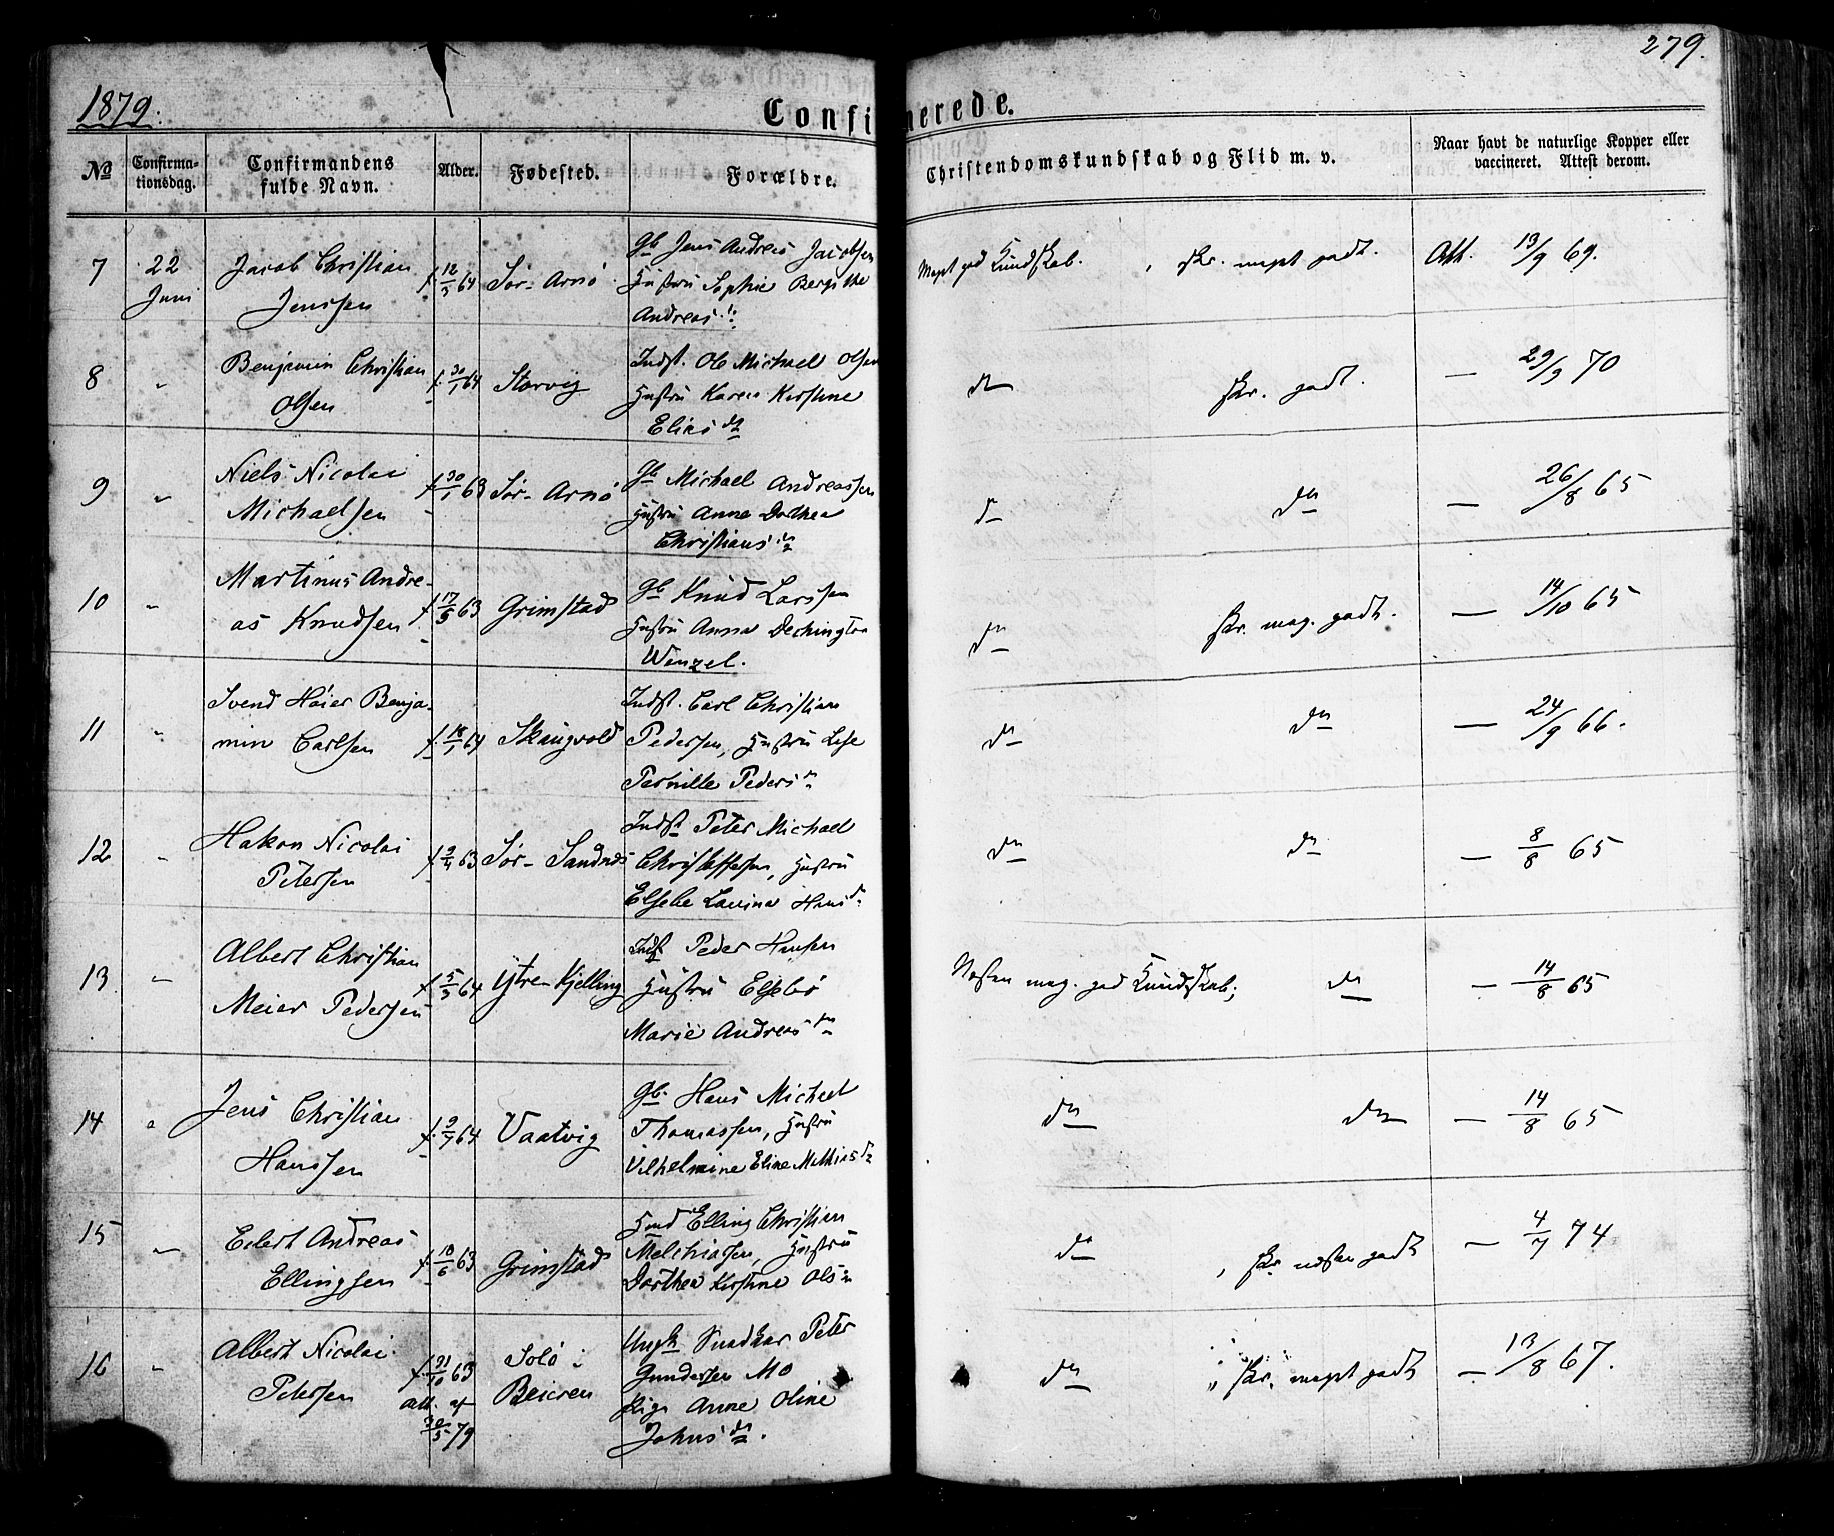 1879.
279.
Confi
merede.
No
Confirma-
tionsdag.
Confirmandens
fulde Navn.
Alder.
Fødested.
Forældre.
Christendomskundskab og Flid m. v.
Naar havt de naturlige Kopper eller
vaccineret. Attest derom.
7 22 Juni
Jacob Christian
Jenssen
f. 12/3 64
Sør-Arnø
Gb Jens Andreas Jacobsen
Hustru Sophie Bergithe
Andreas
Meget god Kundskab. , skr. meget godt. Att. 13/9 69.
8 "
Benjamin Christian
Olsen
f. 30/1 64
Storvig
Indst. Ole Michael Olsen
Hustru Karen Kirstine
Elias dtr
do skr. godt. — 29/9 70
9 "
Niels Nicolai
Michaelsen
f. 30/1 63
Sør-Arnø
Gb Michael Andreassen
Hustru Anne Dorthea
Christians dr
do do — 26/8 65
10 "
Martinus Andre-
as Knudsen
f. 17/5 63
Grimstad
Gb Knud Larssen
Hustru Anna
Wenzel.
do skr. meg. godt. — 14/10 65
11 "
Svend Høier Benja-
min Carlsen
f. 18/1 64
Skaugvold
Indst. Carl Christian
Pedersen, Hustru Lise
Pernille Peders dr
do do — 24/9 66.
12 "
Hakon Nicolai
Petersen
f. 9/4 63
Sør-Sandnes
Indst Peter Michael
Christoffersen, Hustru
Elsebe Lavina Hans dr
do do — 8/8 65
13 "
Albert Christian
Meier Pedersen
f. 5/3 64
Ytre-Kjelling
Indst Peder Hansen
Hustru Elsebe
Marie Andreas dr
Næsten meg. god Kundskab; do — 14/8 65
14 "
Jens Christian
Hanssen
f. 9/7 64
Vaatvig
Gb. Hans Michael
Thomassen, Hustru
Vilhelmine Eline Mathias dr
do do — 14/8 65
15 "
Edert Andreas
Ellingsen
f. 10/6 63
Grimstad
Elling Christian
Melchiorsen, Hustru
Dorthea Kirstine Ols dr
do , skr. næsten godt — 4/7 74
16 "
Albert Nicolai
Petersen
f. 21/10 63
att. af
30/5 79
Solø i
Beieren
Ungk. Snedker Peter
Gundersen Mo
Pige Anne Oline
Johns dr.
do skr. meget godt — 13/8 67.